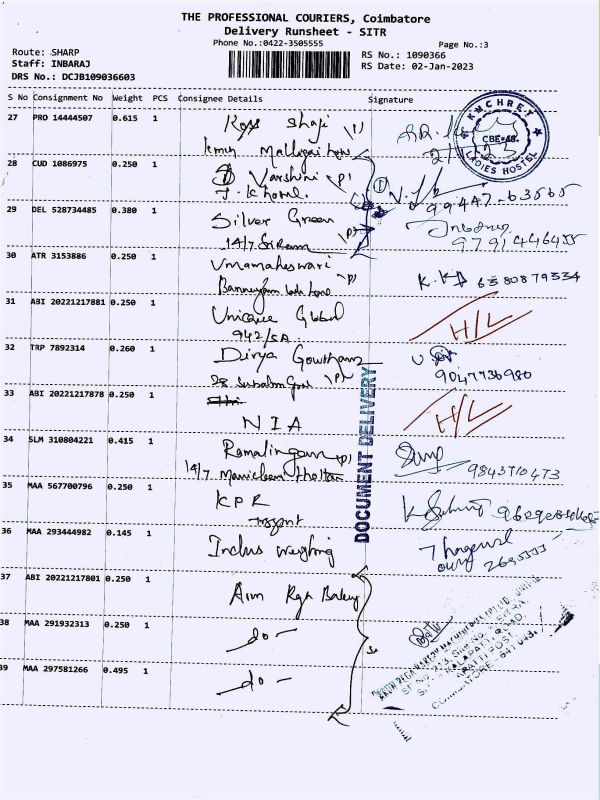 THE PROFESSIONAL COURIERS, Coimbatore
Delivery Runsheet - SITR
Phone No.:0422-3505555
Page No.:3
Route: SHARP
Staff: INBARAJ
DRS No.: DCJB109036603
RS No.: 1090366
RS Date: 02-Jan-2023
S No Consignment No Weight PCS Consignee Details Signature
27 PRO 14444507 0.615 1 Shaji
KMCHRET
CBE-48.
LADIES HOSTEL
28 CUD 1086975 0.250 1 Varshini
J.K home.
99447-63565
29 DEL 528734485 0.380 1 Silver Green
14/7 Sriram
9791446455
30 ATR 3153886 0.250 1 Umamaheswari
6380879334
31 ABI 20221217881 0.250 1 Unique Global
942/5A
H/L
32 TRP 7892314 0.260 1 Divya Gowtham
28
9047736980
33 ABI 20221217878 0.250 1
NIA
H/L
34 SLM 310804221 0.415 1 Ramalingam (P)
14/7 Manickam thottam
9843710473
35 MAA 567700796 0.250 1 KPR
36 MAA 293444982 0.145 1 Indus weighing
2695555
DOCUMENT DELIVERY
37 ABI 20221217801 0.250 1 Aim Rga Bakery
38 MAA 291932313 0.250 1 -do-
39 MAA 297581266 0.495 1 -do-